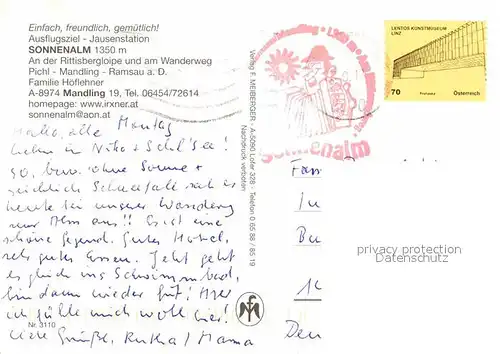 Einfach, freundlich, gemütlich!
Ausflugsziel - Jausenstation
SONNENALM 1350 m
An der Rittisbergloipe und am Wanderweg
Pichl - Mandling - Ramsau a. D.
Familie Höflehner
A-8974 Mandling 19, Tel. 06454/72614
homepage: www.irxner.at
sonnenalm@aon.at
Hallo, alle
lieben in
so, bzw. ohne Sonne +
reichlich Schneefall sah es
heute bei unserer Wanderung
zur Alm aus!! Es ist eine
schöne Gegend. Gutes Hotel,
sehr gutes Essen. Jetzt geht
es gleich ins Schwimmbad,
bin dann wieder fit! Aber
ich fühle mich wohl hier!
Liebe Grüße, Mama
Nr. 3110
Verlag F. MEIBERGER - A-5090 Lofer 328 - Telefon 0 65 88 / 85 19
Nachdruck verboten
Sonnenalm
LENTOS KUNSTMUSEUM
LINZ
70
Österreich
Fam
In
privacy protection
Datenschutz